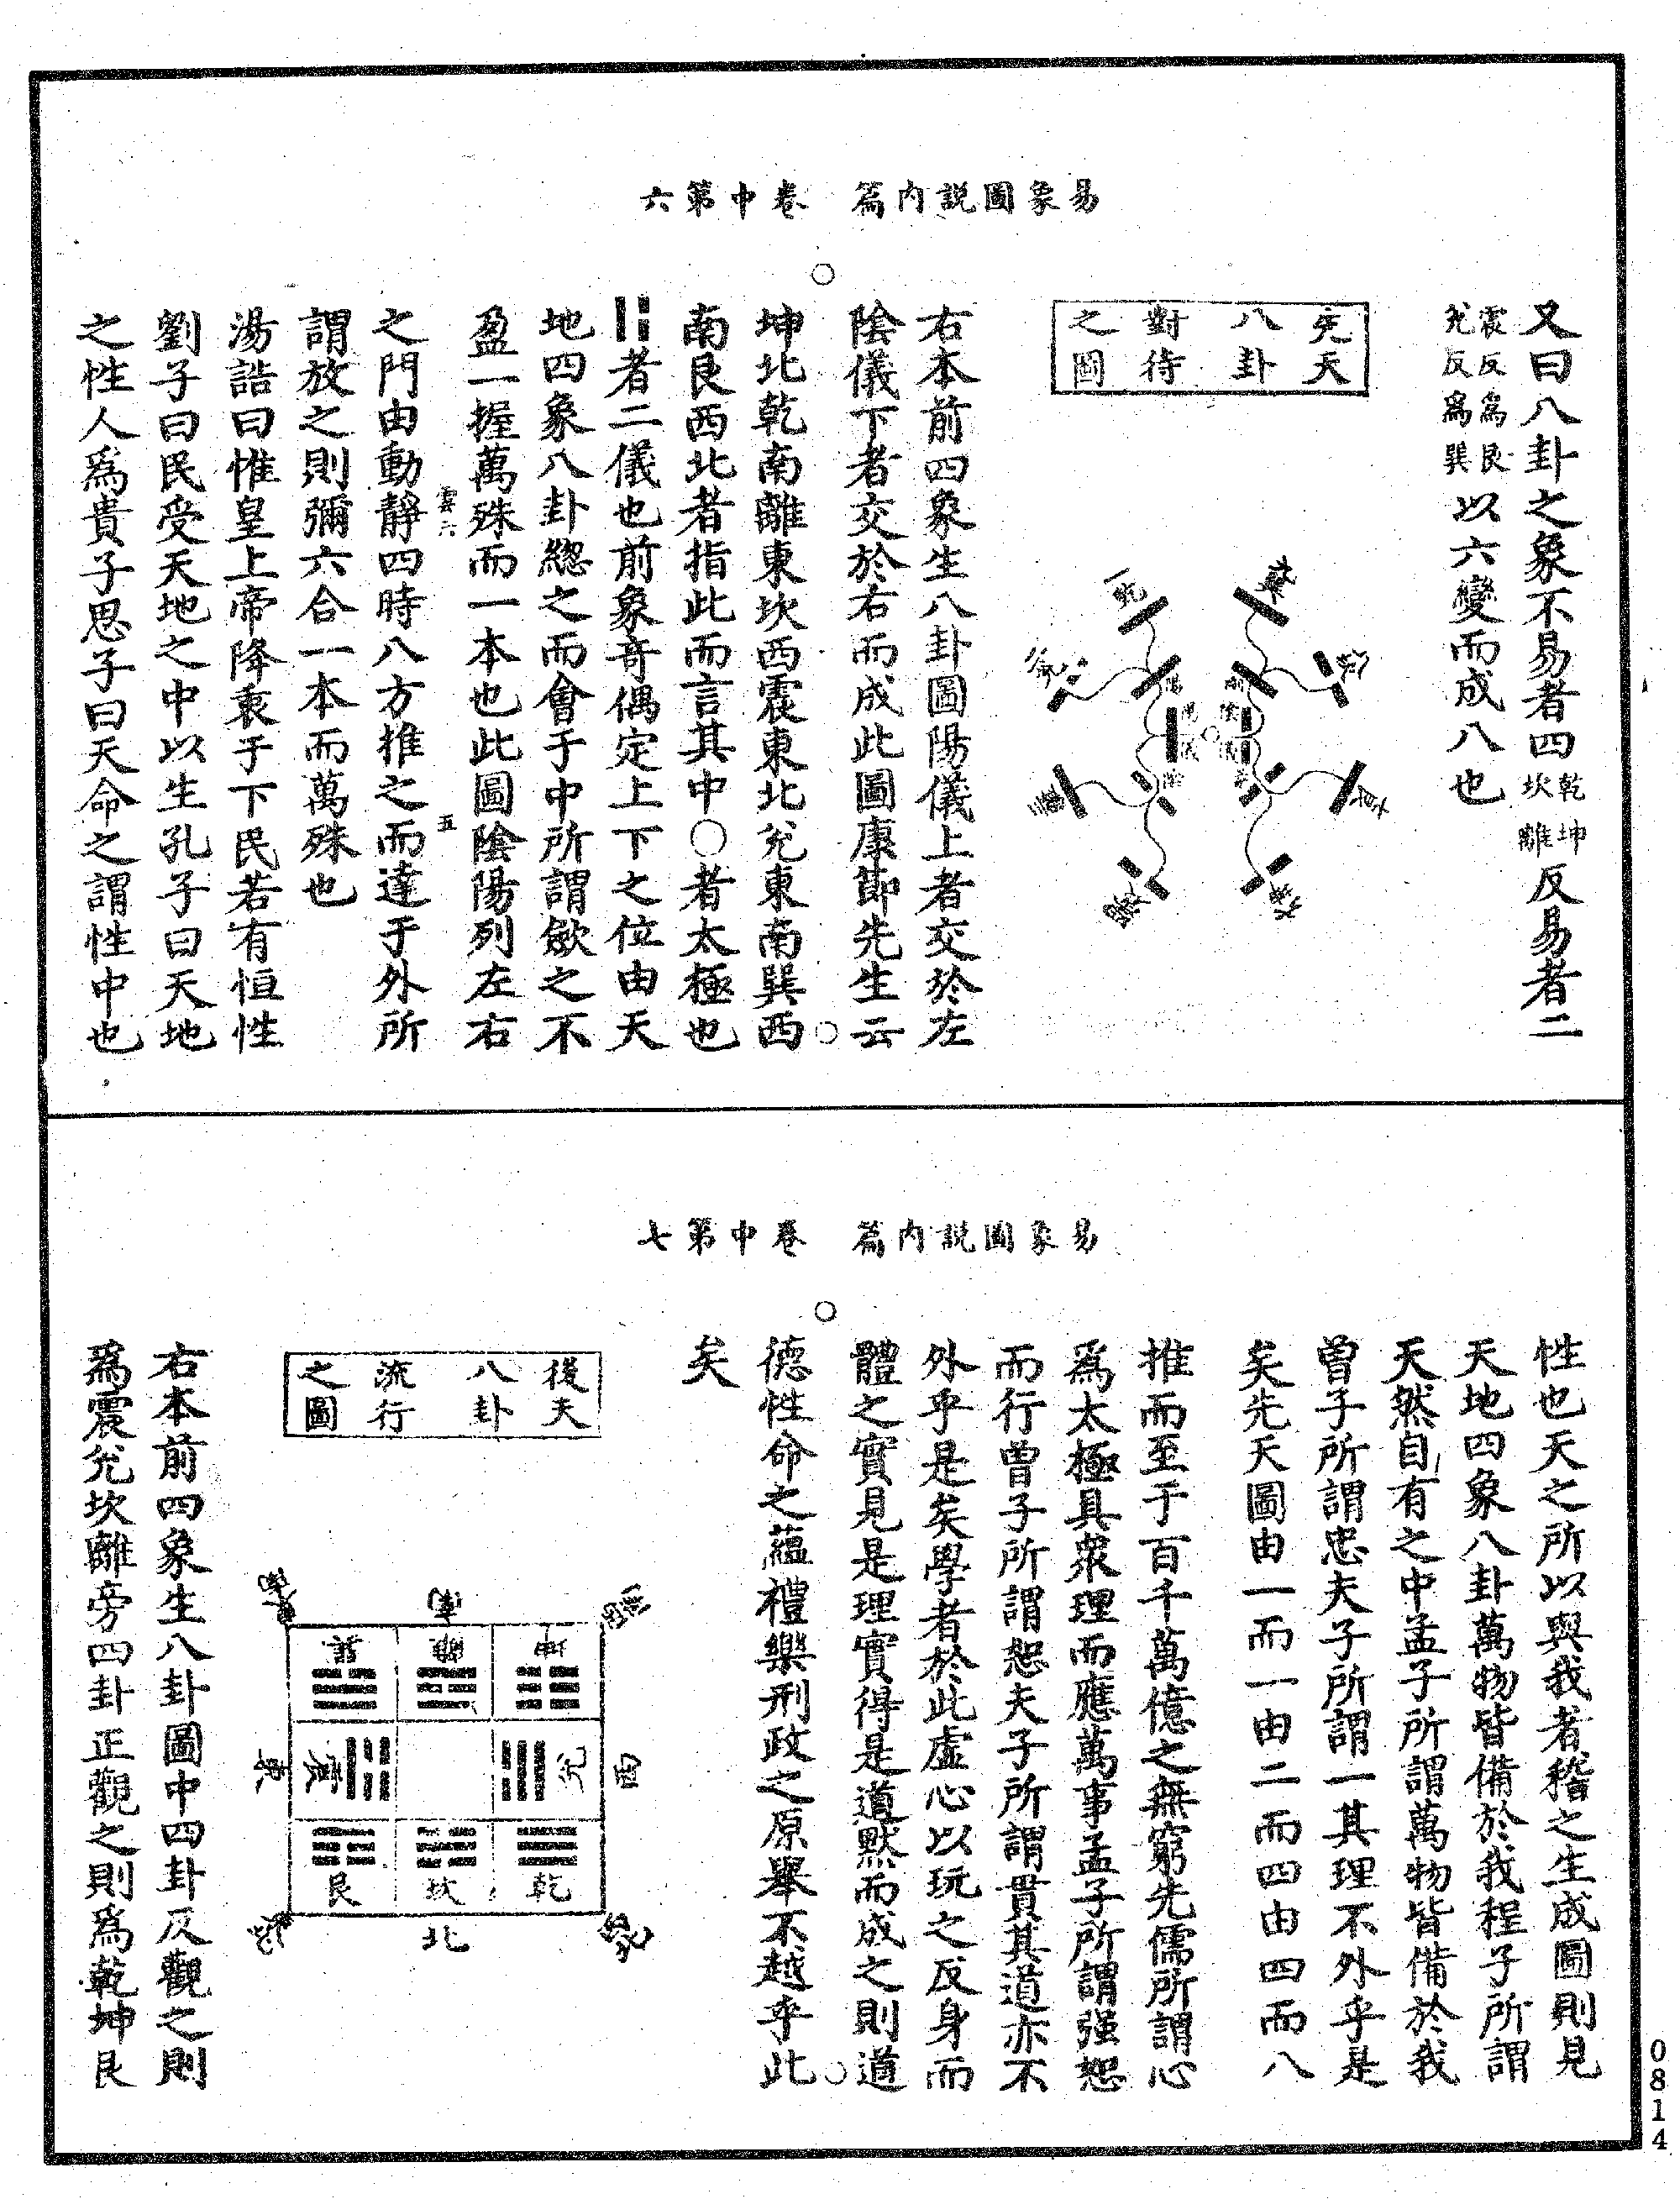 易象圖說內篇　卷中第六
又曰八卦之象不易者四乾坤坎離反易者二
震反爲艮兌反爲巽以六變而成八也
先天
八卦
對待
之圖
右本前四象生八卦圖陽儀上者交於左
陰儀下者交於右而成此圖康節先生云
坤北乾南離東坎西震東北兌東南巽西
南艮西北者指此而言其中〇者太極也
者二儀也前象奇偶定上下之位由天
地四象八卦緫之而會于中所謂斂之不
盈一握萬殊而一本也此圖陰陽列左右
之門由動靜四時八方推之而達于外所
謂放之則彌六合一本而萬殊也
湯誥曰惟皇上帝降衷于下民若有恒性
劉子曰民受天地之中以生孔子曰天地
之性人爲貴子思子曰天命之謂性中也
易象圖說內篇　卷中第七
性也天之所以與我者稽之生成圖則見
天地四象八卦萬物皆備於我程子所謂
天然自有之中孟子所謂萬物皆備於我
曾子所謂忠夫子所謂一其理不外乎是
矣先天圖由一而一由二而四由四而八
推而至于百千萬億之無窮先儒所謂心
爲太極具衆理而應萬事孟子所謂强恕
而行曾子所謂恕夫子所謂貫其道亦不
外乎是矣學者於此虛心以玩之反身而
體之實見是理實得是道默而成之則道
德性命之蘊禮樂刑政之原舉不越乎此
矣
後天
八卦
流行
之圖
坤
離
巽
兌
西
震
東
乾
坎
艮
北
右本前四象生八卦圖中四卦反觀之則
爲震兌坎離旁四卦正觀之則爲乾坤艮
0814